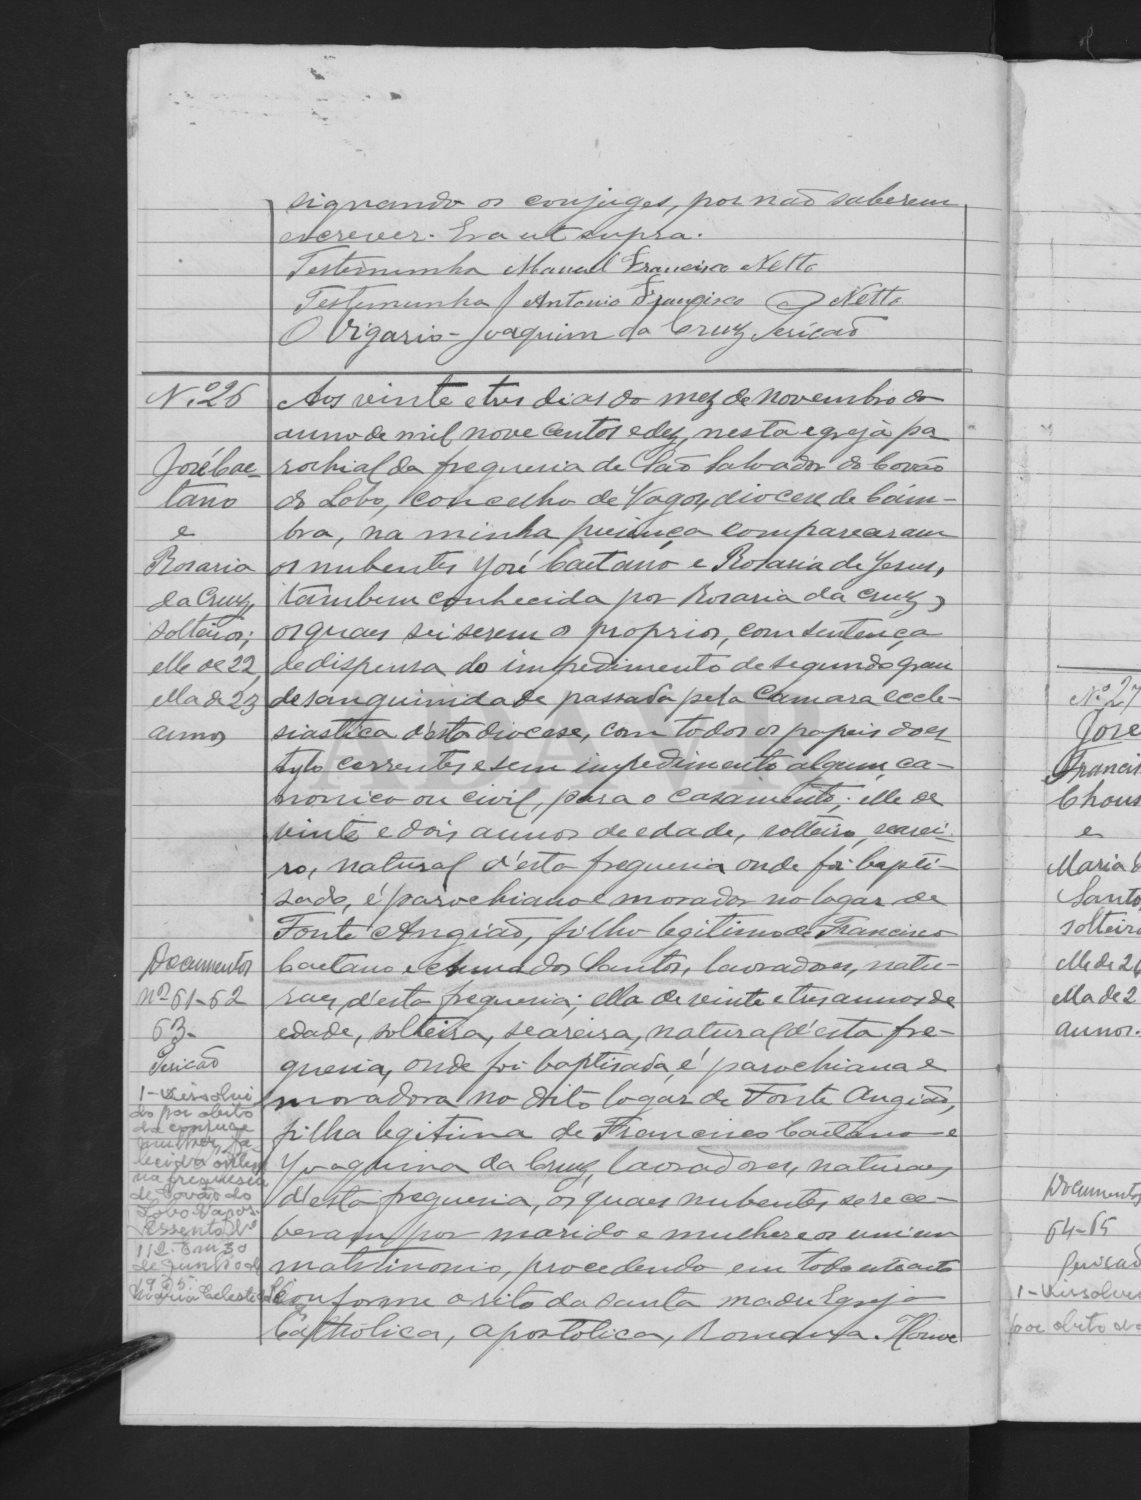 signando os conjuges, por não saberem
escrever. Era ut supra.
Testemunha Manuel Francisco Netto
Testemunha Antonio Francisco Netto
O Vigario - Joaquim da Cruz Sericão
Nº 26
José Cae-
tano
e
Rosaria
da Cruz,
solteiros;
elle de 22,
ella de 23
annos
Documentos
nºs 61-62
63-
Sericão
1 - Dissolvi
do por obito
da conjuge
mulher, fa-
lecida ontem
na freguesia
de Covão do
Lobo - Vagos.
Assento Nº
112. Em 30
de Junho de
1935.
Aos vinte e tres dias do mez de novembro do
anno de mil nove centos e dez, nesta egreja pa
rochial da freguesia de São Salvador do Covão
do Lobo, concelho de Vagos, diocese de Coim-
bra, na minha presença compareceram
os nubentes José Caetano e Rosaria de Jesus,
tambem conhecida por Rosaria da Cruz,
os quaes sei serem os proprios, com sentença
de dispensa do impedimento de segundo grau
de sanguinidade passada pela Camara eccle-
siastica d'esta diocese, com todos os papeis do es
tylo correntes e sem impedimento algum, ca-
nonico ou civil, para o casamento; elle de
vinte e dois annos de edade, solteiro, searei-
ro, natural d'esta freguesia onde foi bapti-
sado, é parochiano e morador no logar de
Fonte Angião, filho legitimo de Francisco
Caetano e Anna dos Santos, lavradores, natu-
raes d'esta freguesia; ella de vinte e tres annos de
edade, solteira, seareira, natural d'esta fre-
guesia, onde foi baptisada, é parochiana e
moradora no dito logar de Fonte Angião,
filha legitima de Francisco Caetano e
Joaquina da Cruz, lavradores, naturaes
d'esta freguesia, os quaes nubentes se rece-
beram por marido e mulher e os uni em
matrimonio, procedendo em todo este acto
conforme o rito da santa madre Egreja
Catholica, apostolica, Romana. Houve
Nº 27
José
Francis
Chous
e
Maria d
Santo
solteiro
elle de 26
ella de 2
annos.
Documentos
64-65
Sericão
1 - Dissolvi
por obito do